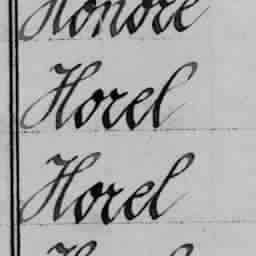 Honoré
Horel
Horel